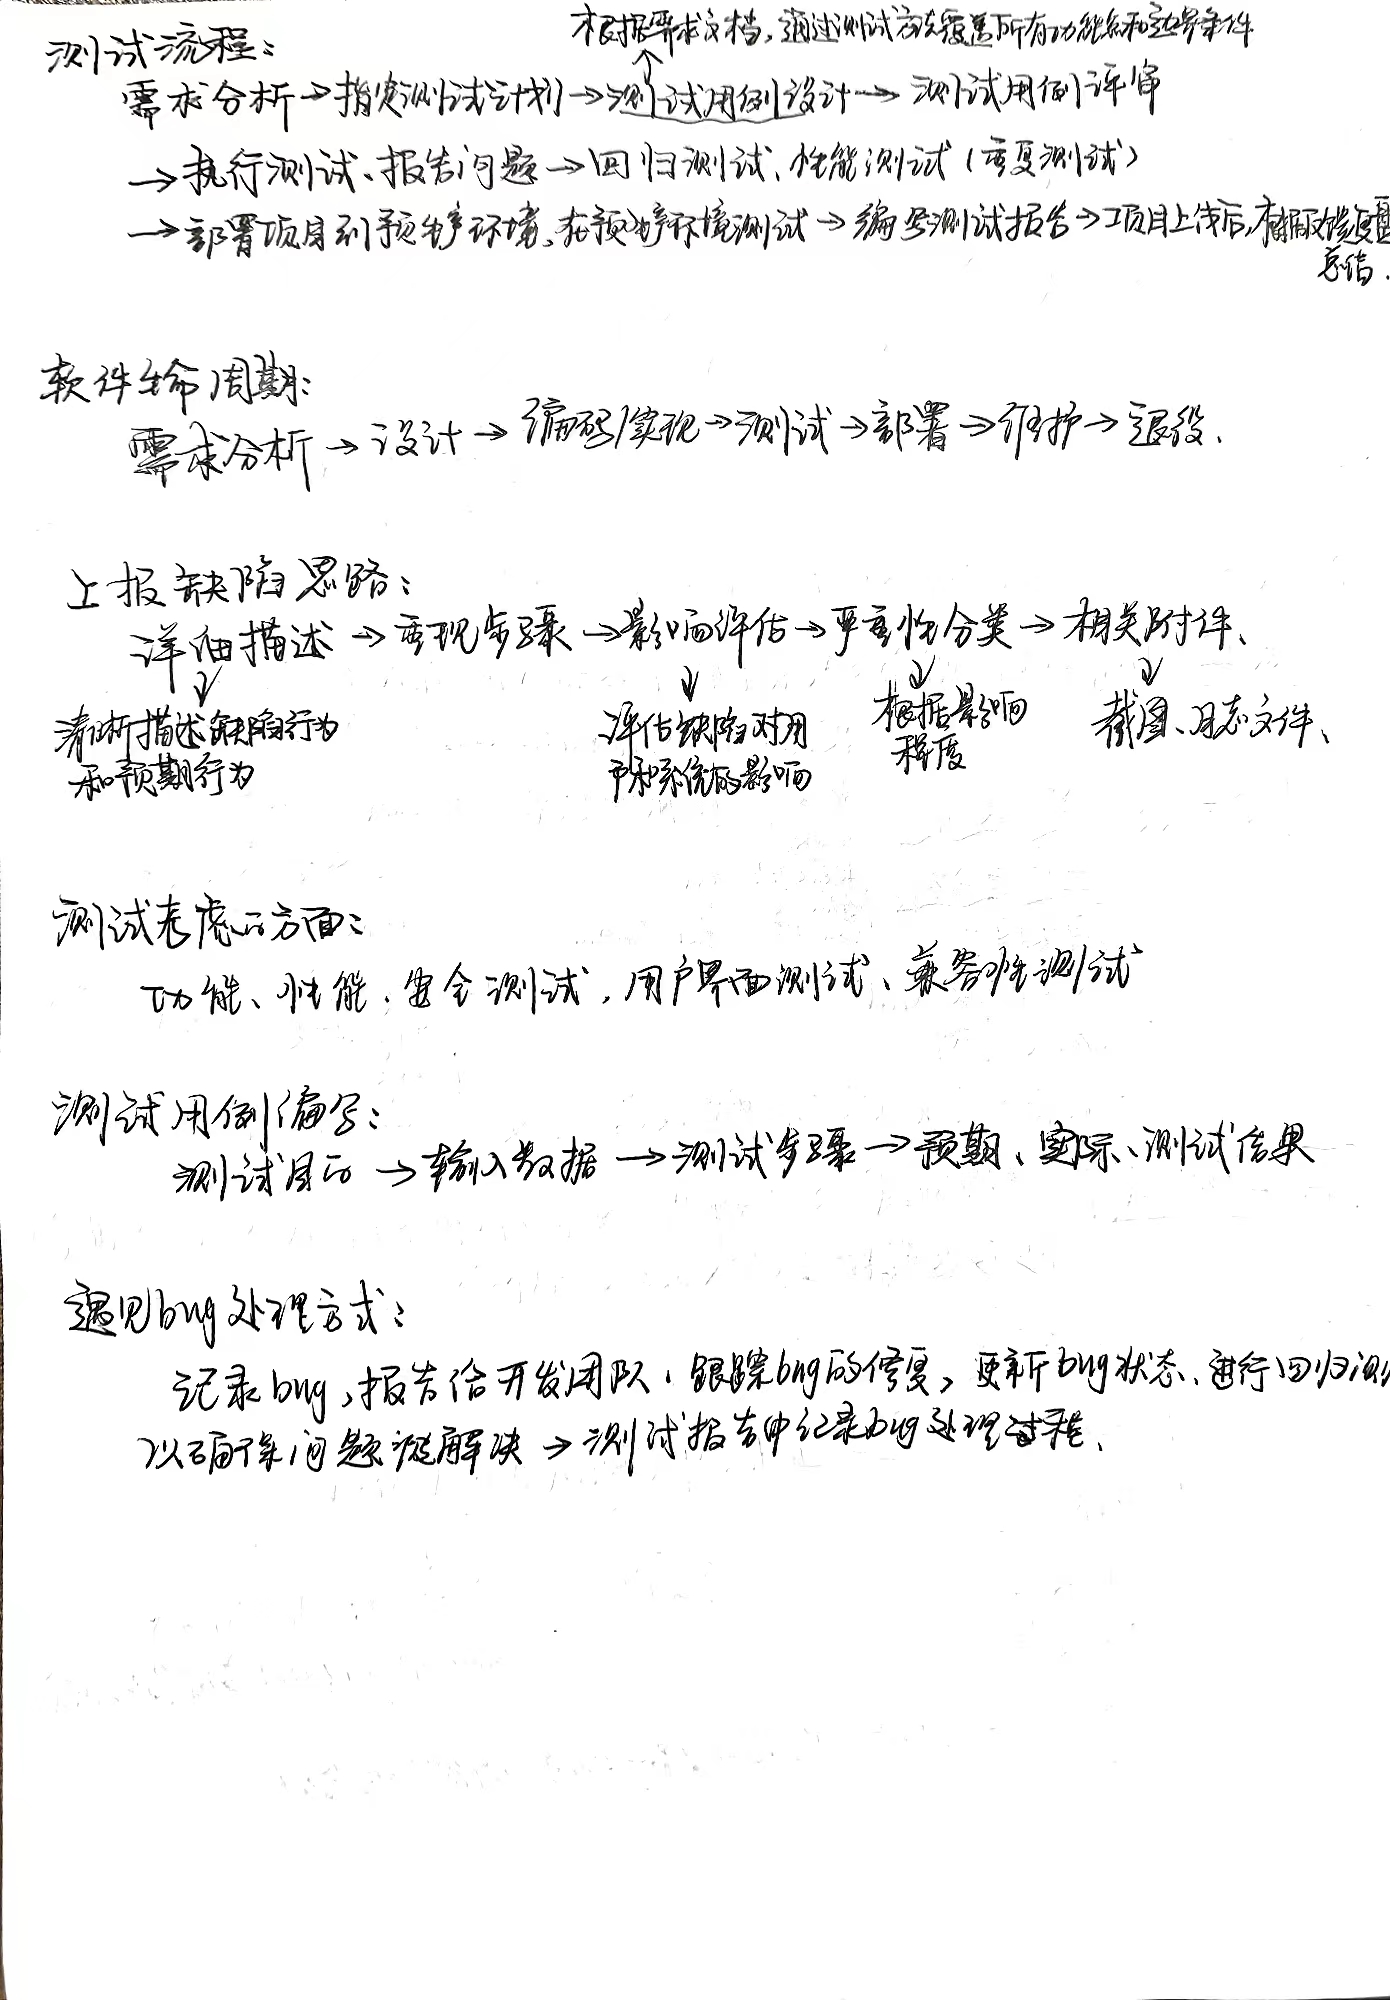 根据需求文档，通过测试方法覆盖所有功能点和边界条件
测试流程：
需求分析→指定测试计划→测试用例设计→测试用例评审
→执行测试、报告问题→回归测试、性能测试（重复测试）
→部署项目到预生产环境、在预生产环境测试→编写测试报告→项目上线后，根据反馈复盘
总结.
软件生命周期：
需求分析→设计→编码/实现→测试→部署→维护→退役.
上报缺陷思路：
详细描述→重现步骤→影响评估→严重性分类→相关附件、
清晰描述缺陷行为
和预期行为
评估缺陷对用
户和系统的影响
根据影响
程度
截图、日志文件、
测试考虑的方面：
功能、性能、安全测试，用户界面测试、兼容性测试
测试用例编写：
测试目的→输入数据→测试步骤→预期、实际、测试结果
遇见bug处理方式：
记录bug，报告给开发团队，跟踪bug的修复，更新bug状态、进行回归测
以确保问题被解决→测试报告中记录bug处理过程、